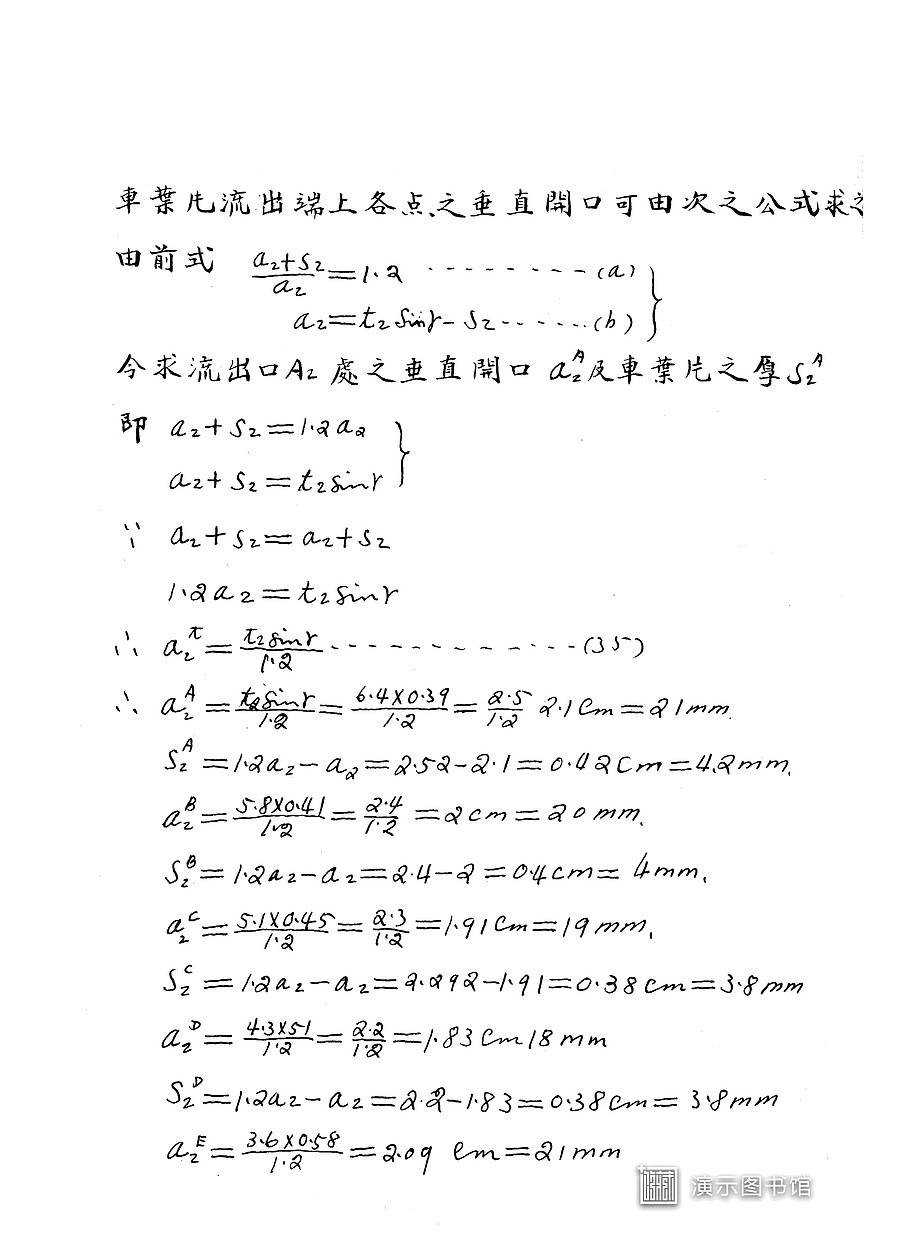 車葉片流出端上各点之垂直開口可由次之公式求之
由前式 (a₂+s₂)/a₂=1.2 --------- (a)
a₂=t₂sinγ-s₂------(b)
今求流出口A₂處之垂直開口 a₂ᴬ及車葉片之厚s₂ᴬ
即 a₂+s₂=1.2a₂
a₂+s₂=t₂sinγ
∵ a₂+s₂=a₂+s₂
1.2a₂=t₂sinγ
∴ a₂ᵗ=t₂sinγ/1.2 ------------(35)
∴ a₂ᴬ=t₂sinγ/1.2=6.4×0.39/1.2=2.5/1.2 2.1cm=21mm.
s₂ᴬ=1.2a₂-a₂=2.52-2.1=0.42cm=4.2mm.
a₂ᴮ=5.8×0.41/1.2=2.4/1.2=2cm=20mm.
s₂ᴮ=1.2a₂-a₂=2.4-2=0.4cm=4mm.
a₂ᶜ=5.1×0.45/1.2=2.3/1.2=1.91cm=19mm.
s₂ᶜ=1.2a₂-a₂=2.292-1.91=0.38cm=3.8mm
a₂ᴰ=4.3×51/1.2=2.2/1.2=1.83cm18mm
s₂ᴰ=1.2a₂-a₂=2.2-1.83=0.38cm=3.8mm
a₂ᴱ=3.6×0.58/1.2=2.09 cm=21mm
演示图书馆